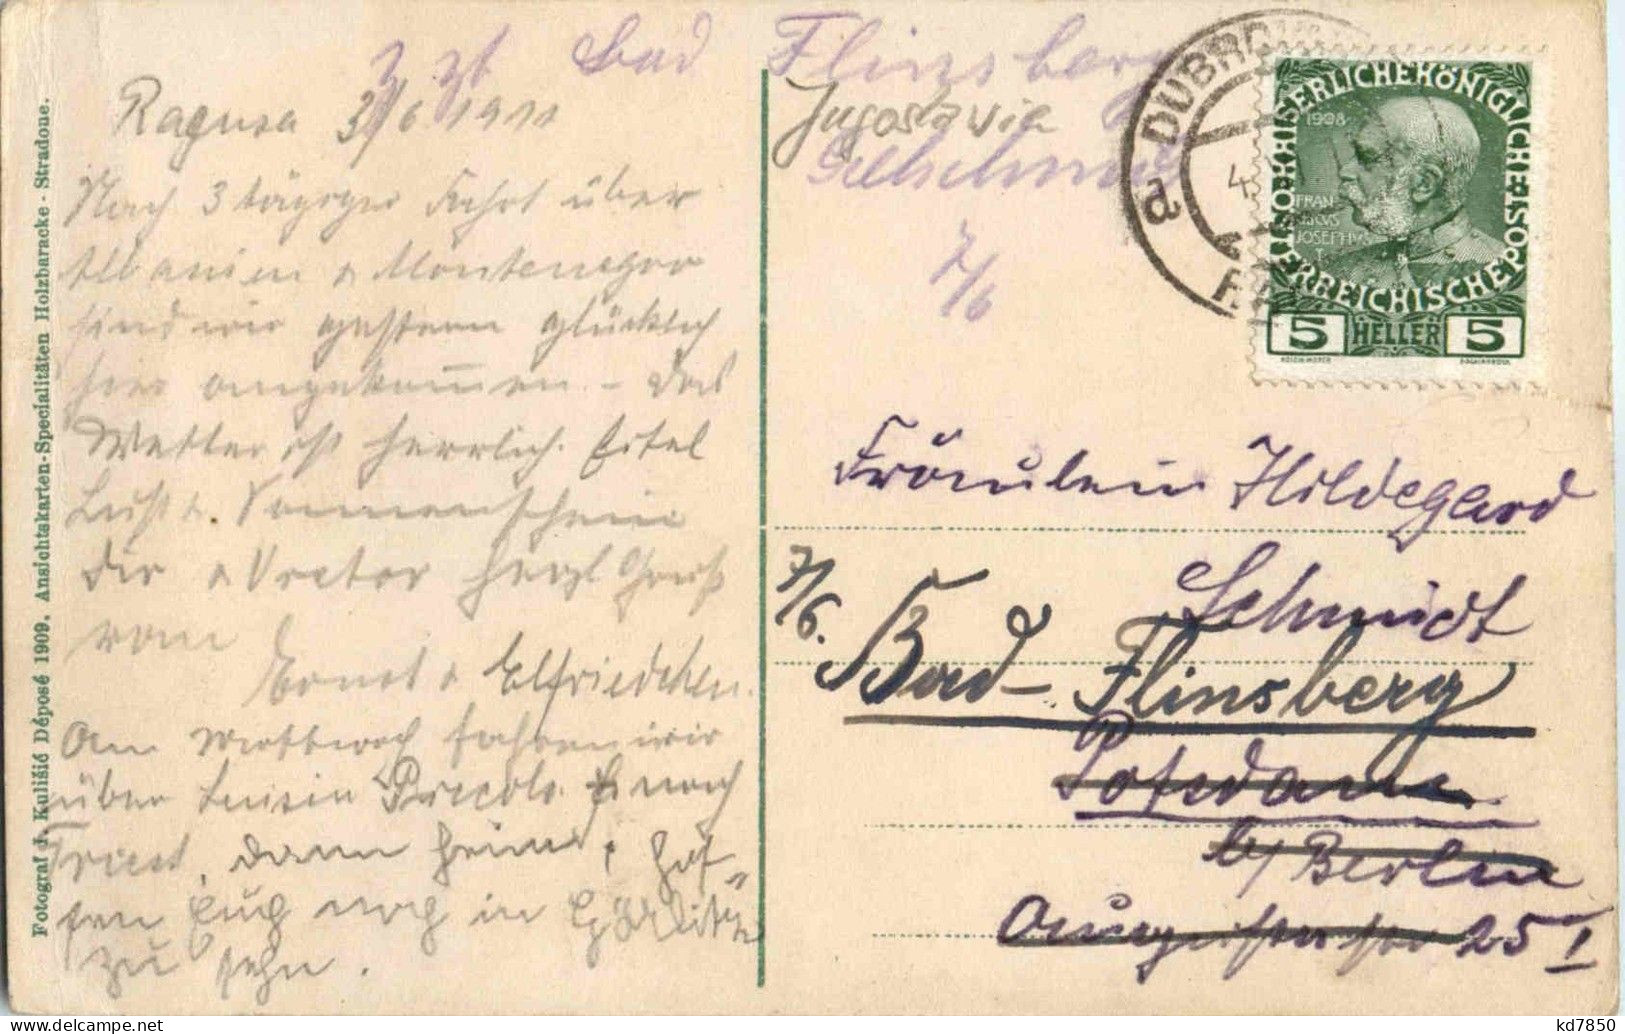 z. Zt. Bad Flinsberg
Ragusa 3/6 1911
Nach 3 tägiger Fahrt über
Albanien & Montenegro
sind wir gestern glücklich
hier angekommen. – Das
Wetter ist herrlich. Eitel
Luft u. Sonnenschein
Dir & Vrator herzl Gruß
von
Ernst & Elfriedchen.
Am Mittwoch fahren wir
über Lussin Piccolo nach
Triest, dann heim, hof-
fen Euch noch in Görlitz
zu sehn.
Fotograf J. Kulišić Déposé 1909. Ansichtskarten-Specialitäten Holzbaracke - Stradone.
Jugoslavia
7/6
DUBROV
a
4
KAISERLICHE KÖNIGLICHE ÖSTERREICHISCHE POST
1908
FRAN
CISCVS
JOSEPHVS
5 HELLER 5
Fräulein Hildegard
Schmidt
7/6.
Bad-Flinsberg
Potsdam
b/ Berlin
25 I
kd7850